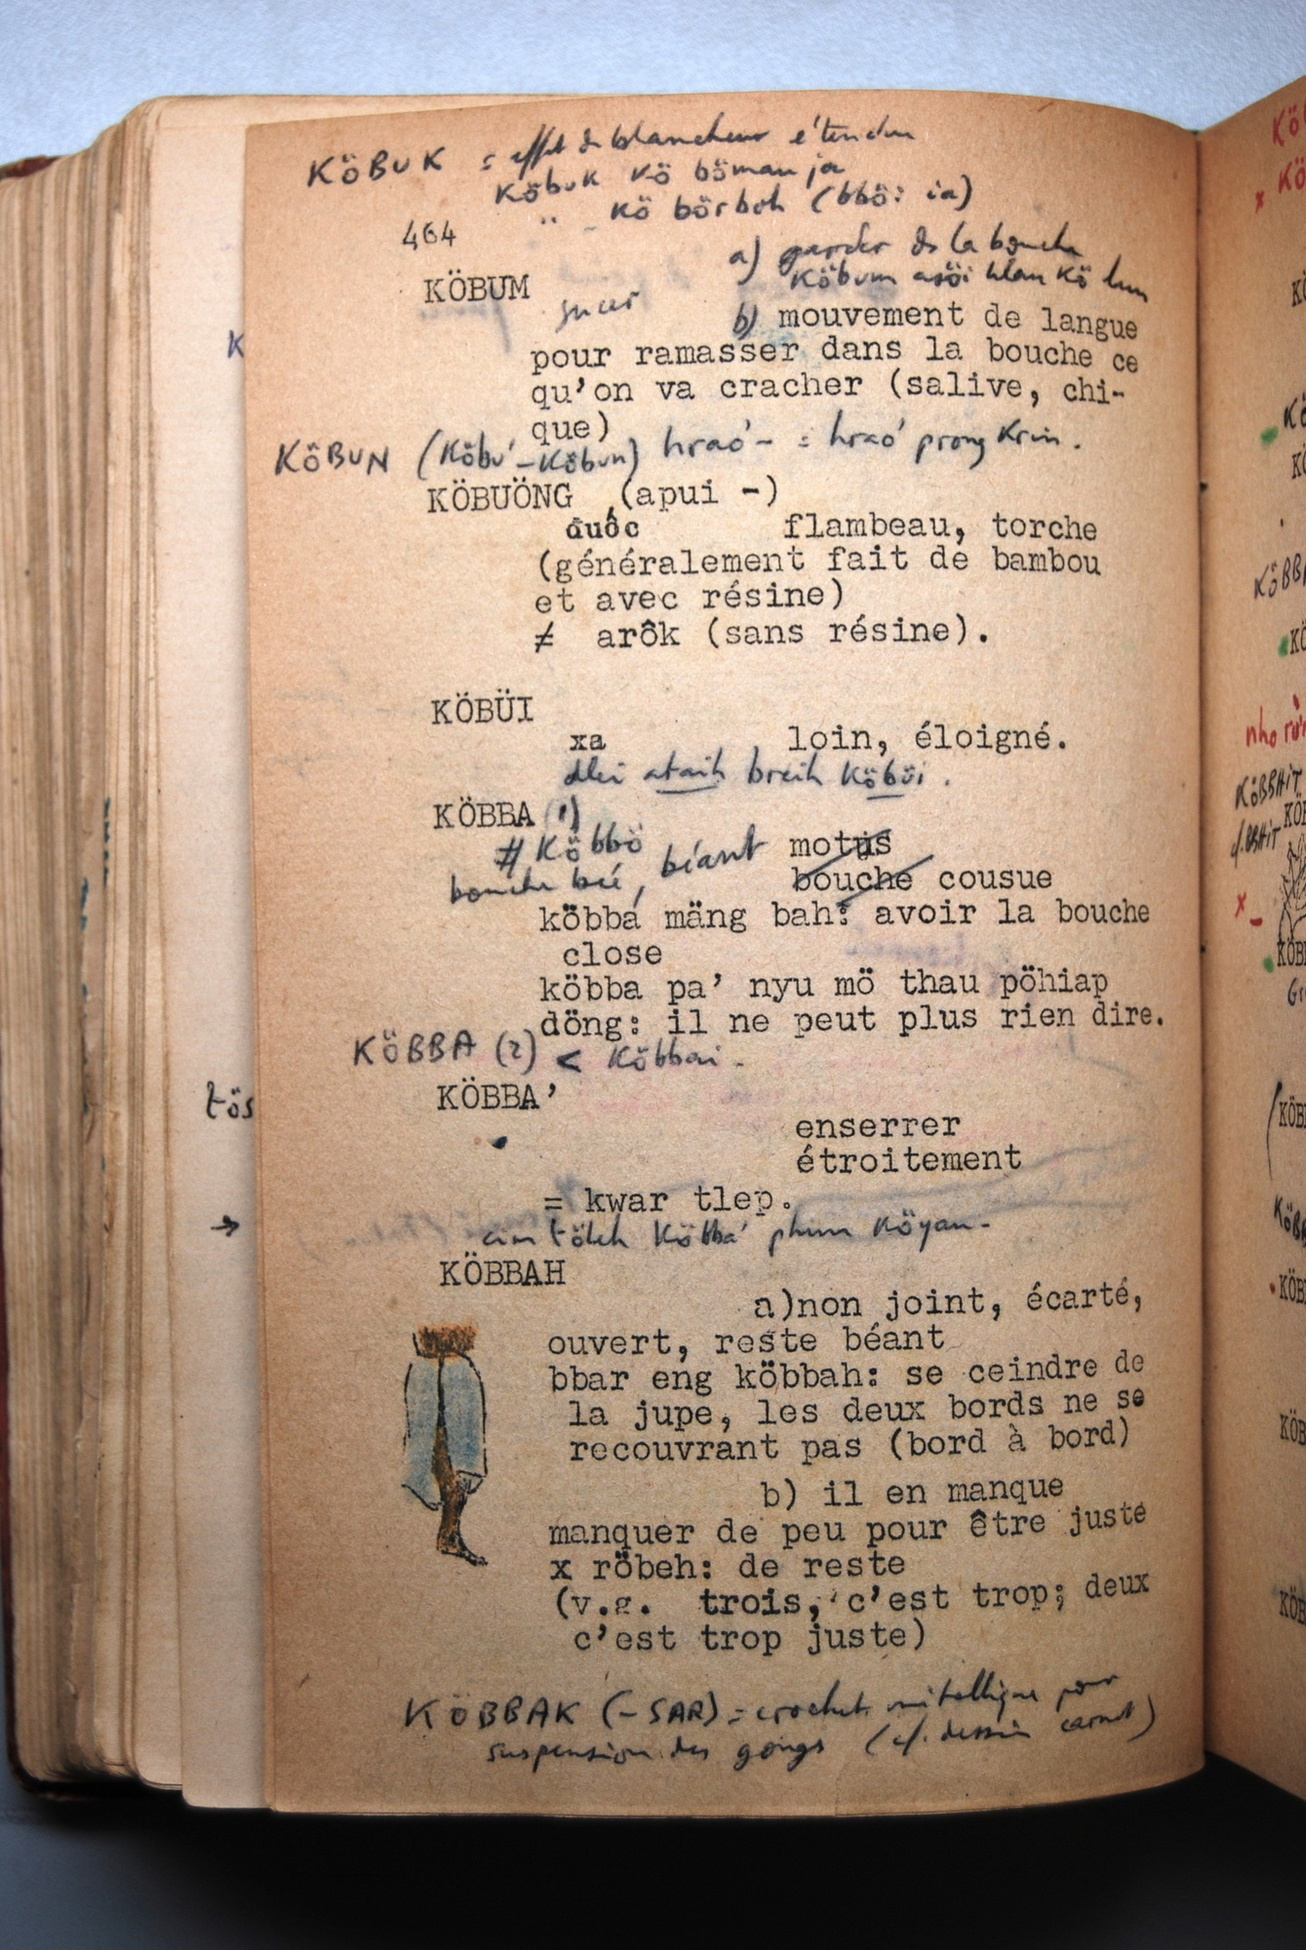 KÖBUK = effet de blancheur étendue
köbuk kö böman ja
" - kö börboh (bbö: ia)
464
a) garder ds la bouche
KÖBUM
köbum asöi hlan kö
sucer
b) mouvement de langue
pour ramasser dans la bouche ce
qu'on va cracher (salive, chi-
que)
KÖBUN (köbu'-köbun) hraó - = hraó prong krin.
KÖBUÖNG (apui -)
đuốc flambeau, torche
(généralement fait de bambou
et avec résine)
≠ arôk (sans résine).
KÖBÜI
xa loin, éloigné.
dlei ataih breih köbüi.
KÖBBA (1)
# köbbö béant motus
bouche bée, bouche cousue
köbba mäng bah: avoir la bouche
close
köbba pa' nyu mö thau pöhiap
döng: il ne peut plus rien dire.
KÖBBA (2) < köbbai -
KÖBBA'
tös
enserrer
étroitement
= kwar tlep.
→
töleh köbba' phun köyau -
KÖBBAH
a)non joint, écarté,
ouvert, reste béant
bbar eng köbbah: se ceindre de
la jupe, les deux bords ne se
recouvrant pas (bord à bord)
b) il en manque
manquer de peu pour être juste
x röbeh: de reste
(v.g. trois, c'est trop; deux
c'est trop juste)
KÖBBAK (-SAR) = crochet métallique pour
suspension des gongs (cf. dessin carnet)